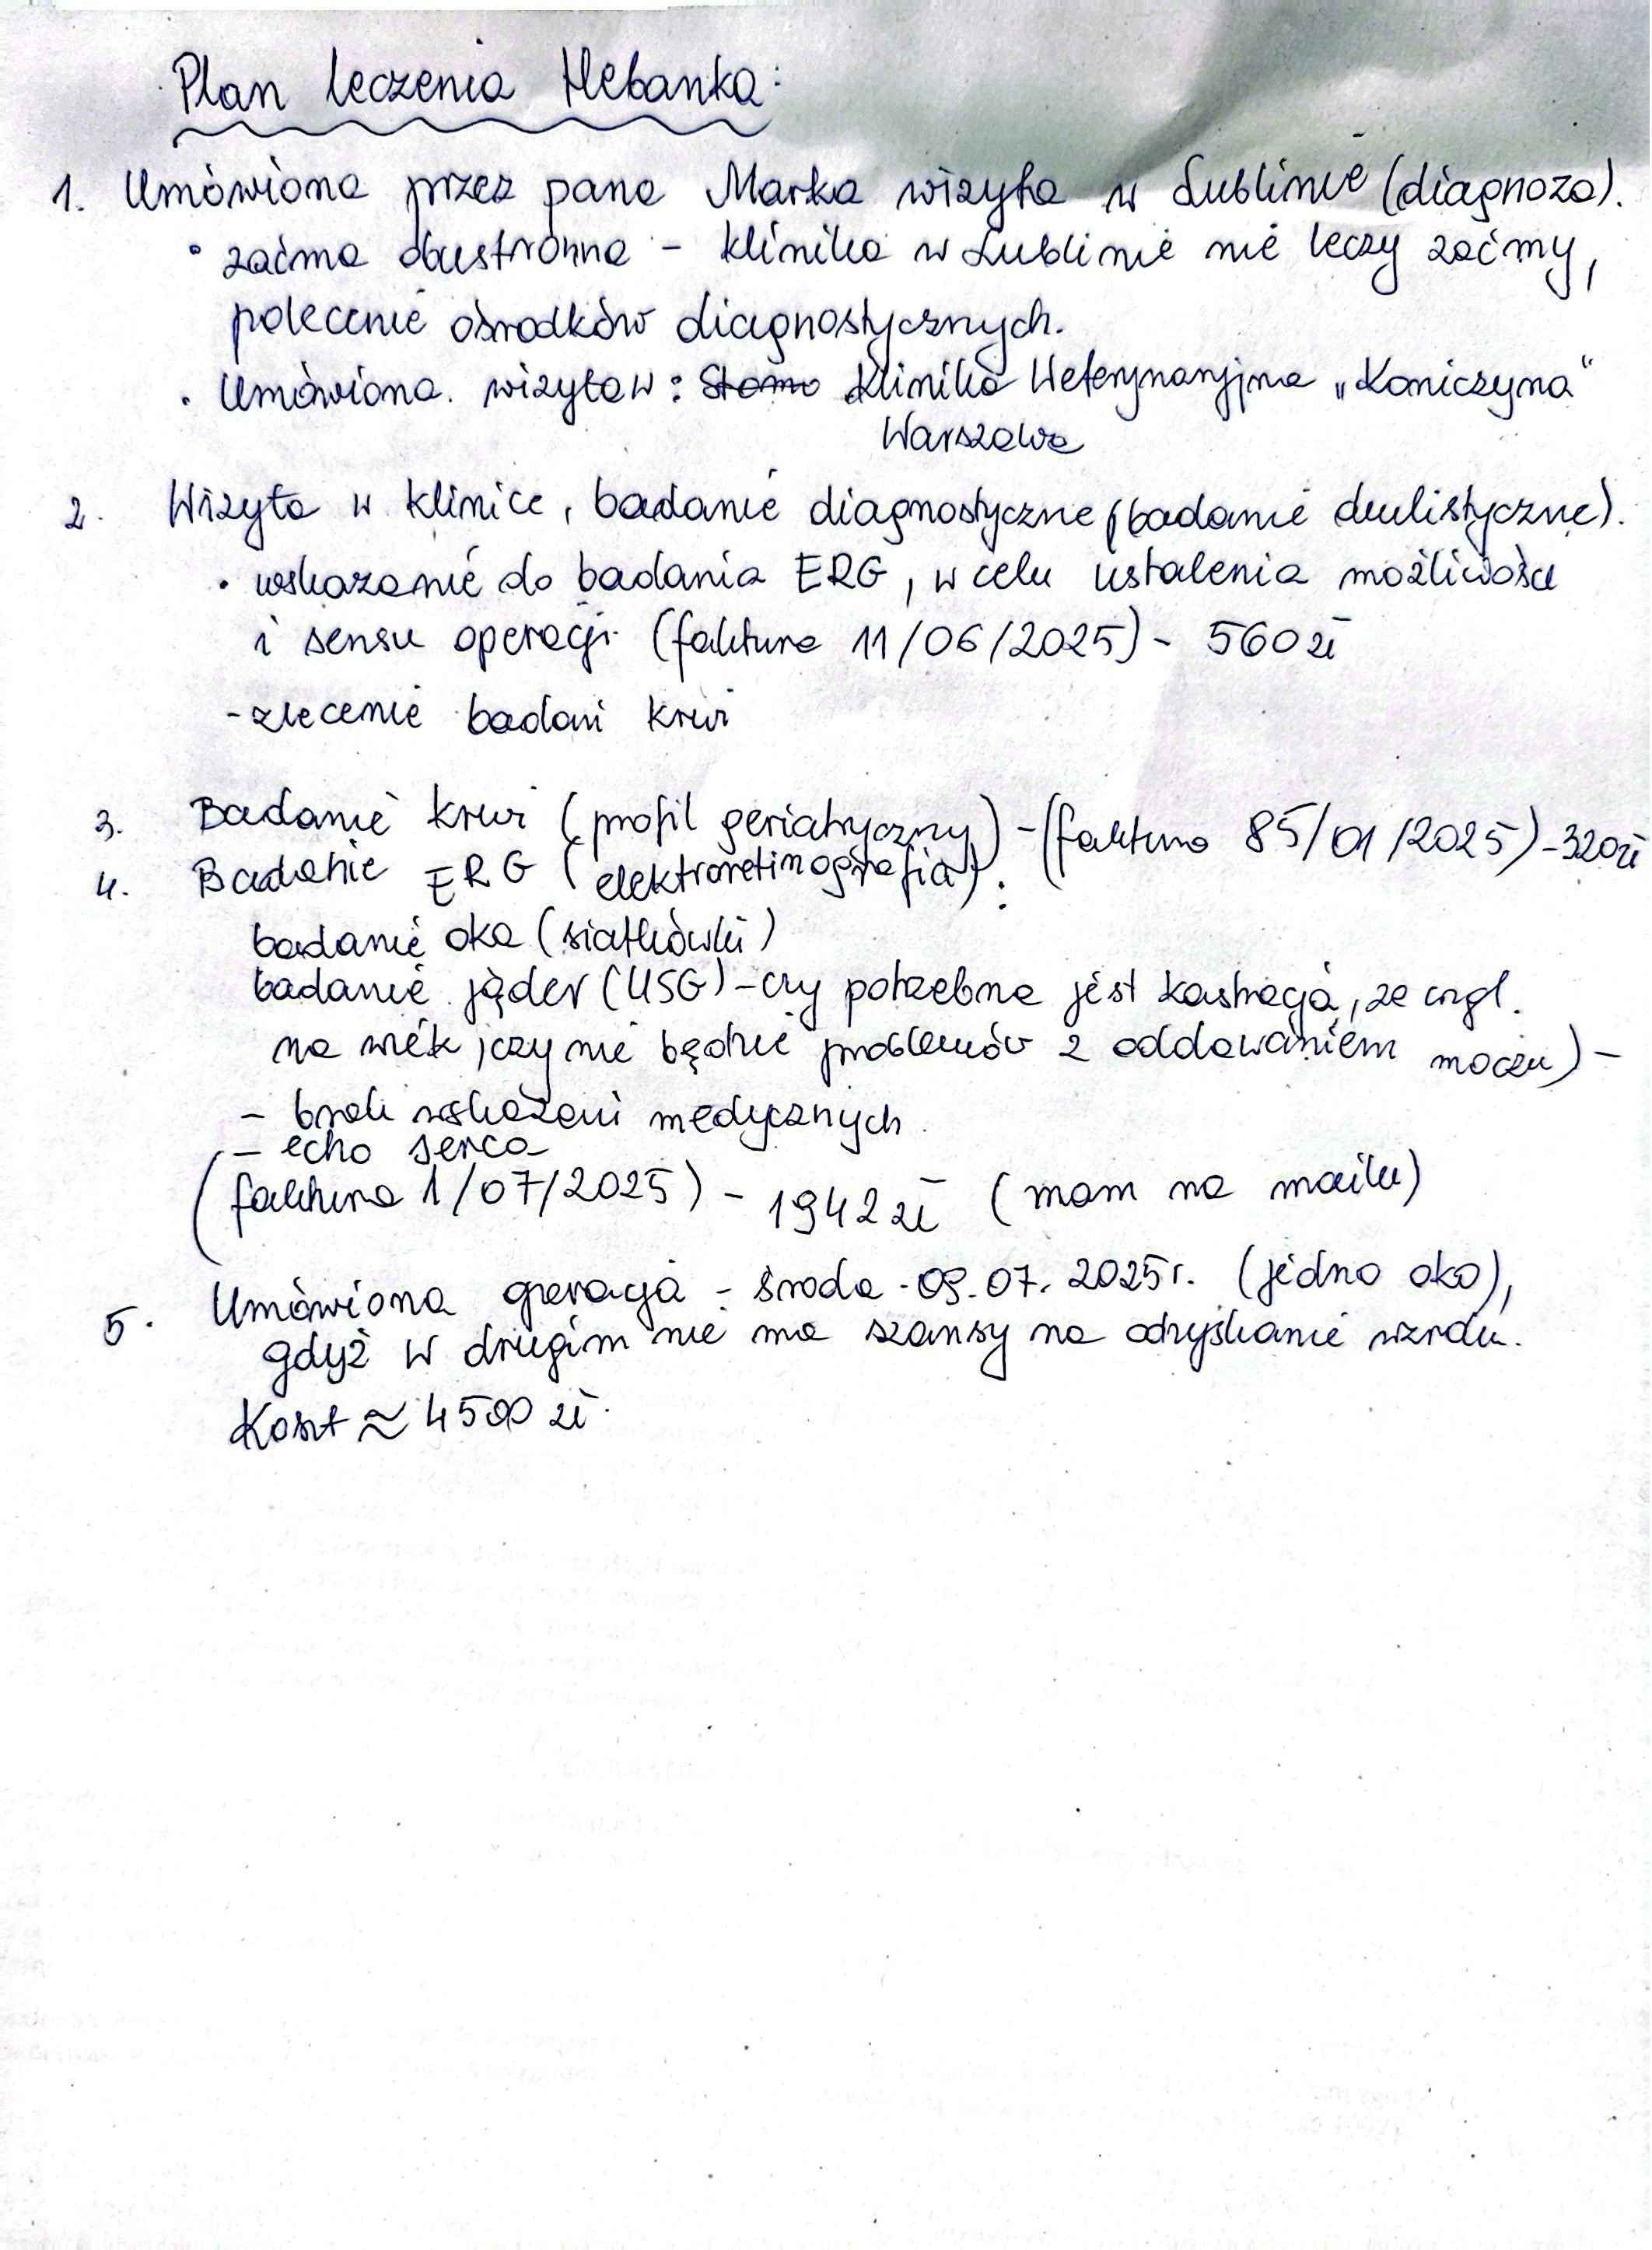 Plan leczenia Hebanka:
1. Umówiona przez pana Marka wizyta w Lublinie (diagnoza).
• zaćma obustronna - klinika w Lublinie nie leczy zaćmy,
polecenie ośrodków diagnostycznych.
• Umówiona wizyta w: Klinika Weterynaryjna „Koniczyna"
Warszawa
2. Wizyta w klinice, badanie diagnostyczne (badanie okulistyczne).
• wskazanie do badania ERG, w celu ustalenia możliwości
i sensu operacji (faktura 11/06/2025) - 560 zł
- zlecenie badań krwi
3. Badanie krwi (profil geriatryczny) - (faktura 85/01/2025) - 320 zł
4. Badanie ERG (elektroretinografia):
badanie oka (siatkówki)
badanie jąder (USG) - czy potrzebna jest kastracja, ze wzgl.
na wiek, czy nie będzie problemów z oddawaniem moczu) -
- brak wskazań medycznych.
- echo serca
(faktura 1/07/2025) - 1942 zł (mam na mailu)
5. Umówiona operacja - środa - 09.07.2025r. (jedno oko),
gdyż w drugim nie ma szansy na odzyskanie wzroku.
Koszt ≈ 4500 zł.